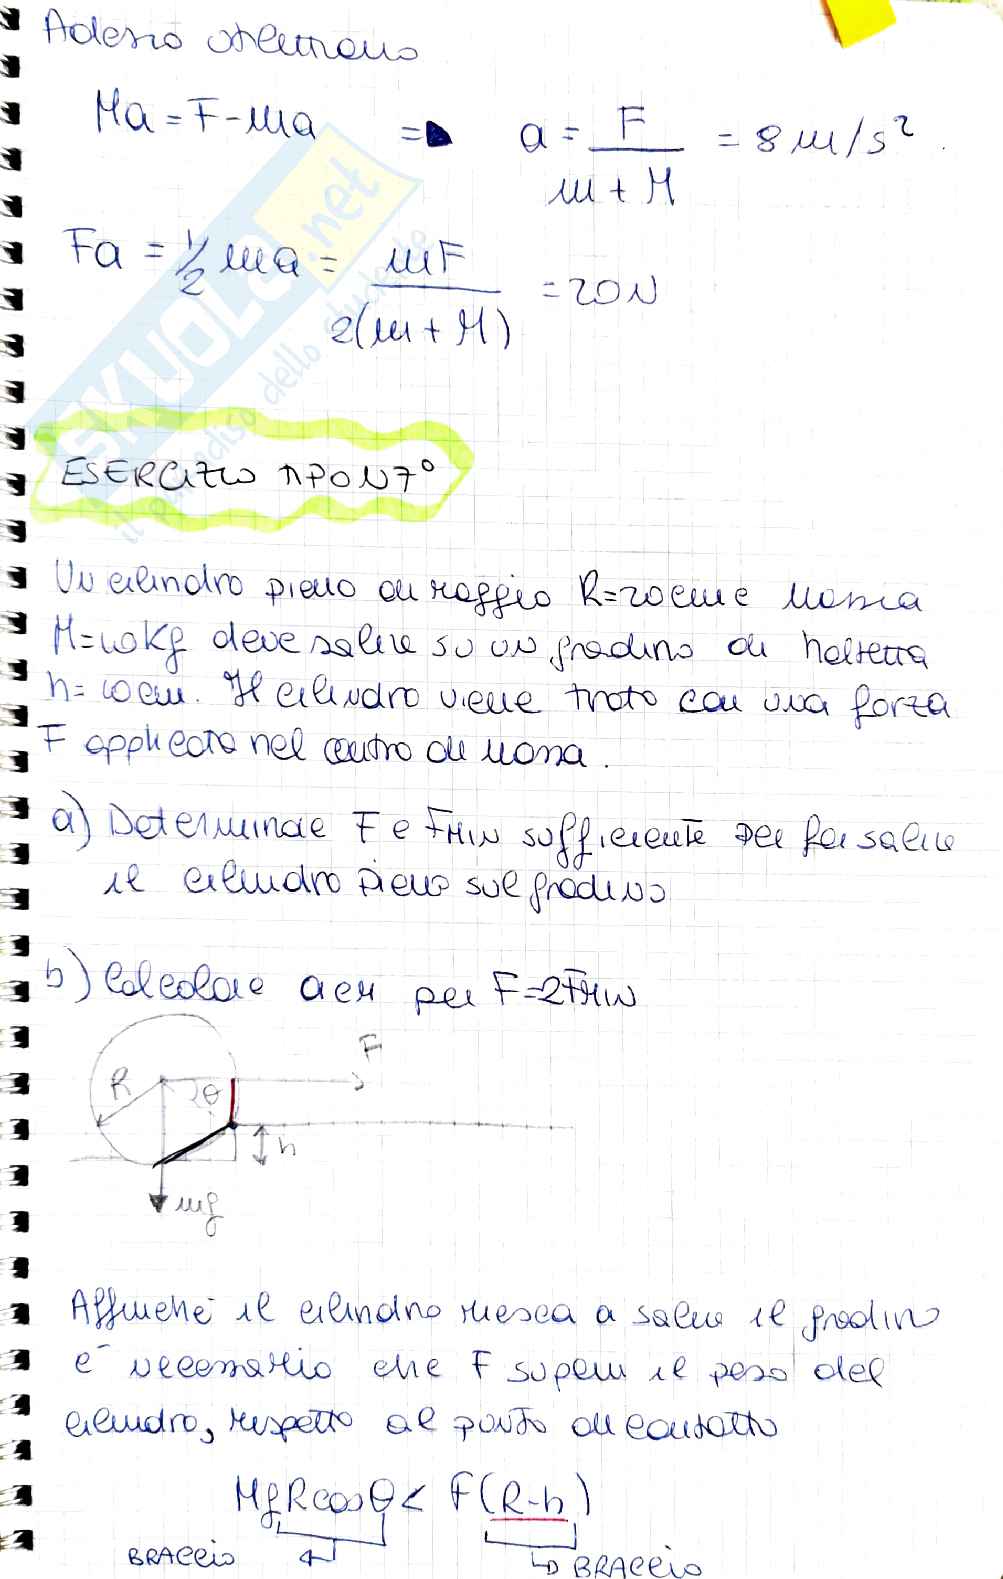 Adesso otteniamo
Ma = F - ma => a = F / (m + M) = 8 m/s²
Fa = 1/2 ma = mF / 2(m + M) = 20N
SKUOLA.net
il paradiso dello studente
ESERCIZIO TIPO N7°
Un cilindro pieno di raggio R=20cm e massa
M=10Kg deve salire su un gradino di haltezza
h=10cm. Il cilindro viene tirato con una forza
F applicata nel centro di massa.
a) Determinare F e FMIN sufficiente per far salire
il cilindro pieno sul gradino
b) Calcolare acm per F=2FMIN
F
R
θ
h
mg
Affinché il cilindro riesca a salire il gradino
è necessario che F superi il peso del
cilindro, rispetto al punto di contatto
MgRcosθ < F(R-h)
BRACCIO BRACCIO